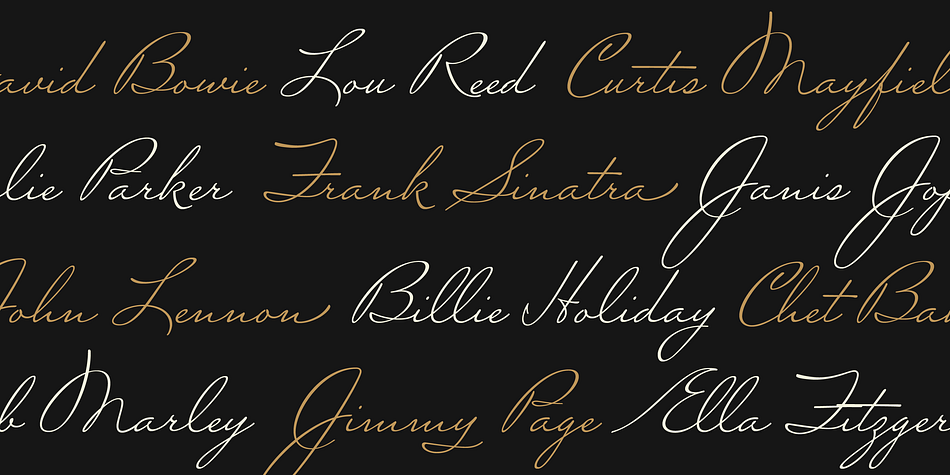 avid Bowie Lou Reed Curtis Mayfiel
lie Parker Frank Sinatra Janis Jop
John Lennon Billie Holiday Chet Bak
b Marley Jimmy Page Ella Fitzger